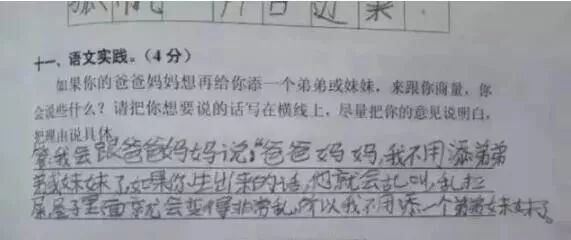 十一、语文实践。(4分)
如果你的爸爸妈妈想再给你添一个弟弟或妹妹，来跟你商量，你
会说些什么？请把你想要说的话写在横线上，尽量把你的意见说明白，
把理由说具体
答：我会跟爸爸妈妈说："爸爸妈妈，我不用添弟弟
或妹妹了，如果你生出来的话，他就会乱叫，乱拉
屎，屋子里面就会变得非常乱，所以我不用添一个弟弟或妹妹了。